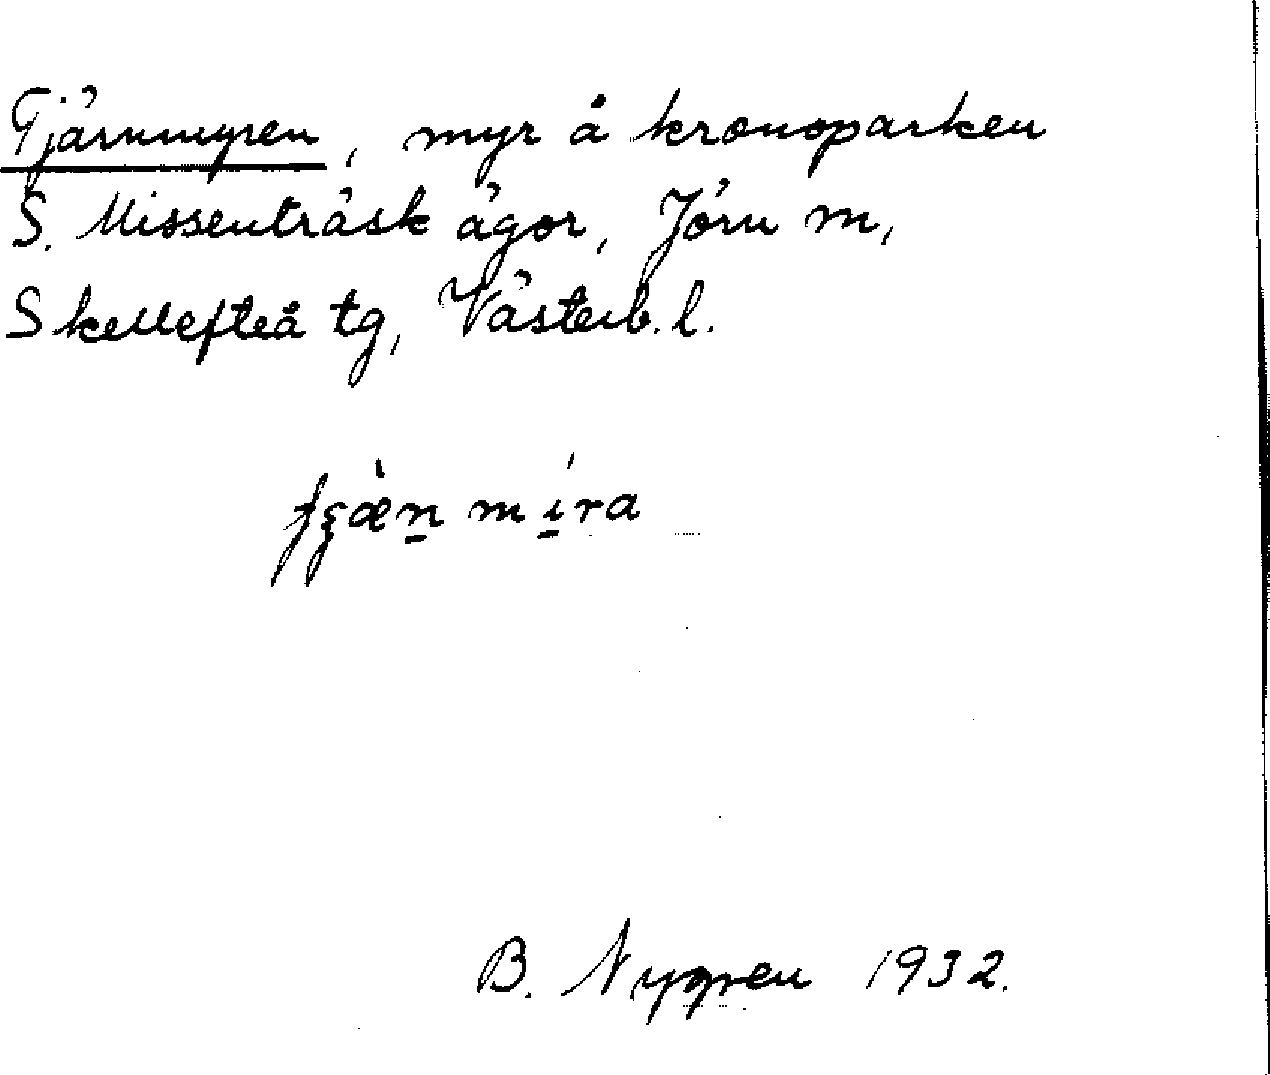 Tjärnmyren, myr å kronoparken
S. Missenträsk ägor, Jörn m,
Skellefteå tg, Västerb. l.
mi̠ra
B. Nygren 1932.